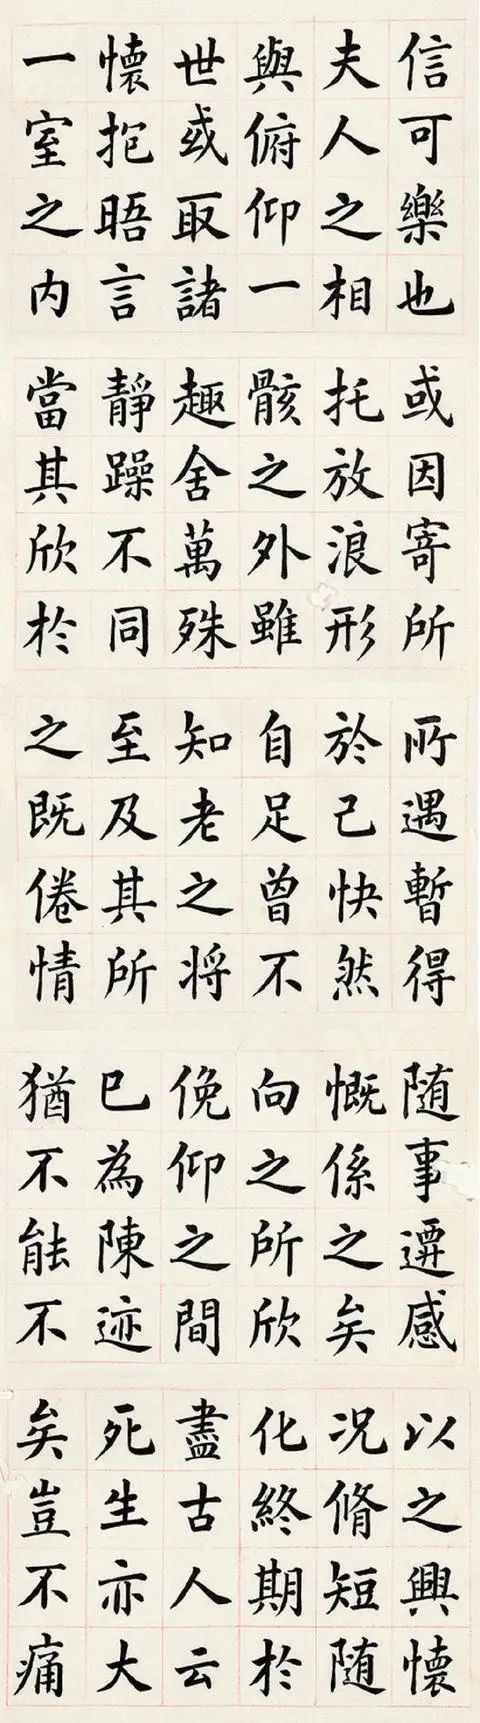 信可樂也
夫人之相
與俯仰一
世或取諸
懷抱晤言
一室之内
或因寄所
托放浪形
骸之外雖
趣舍萬殊
靜躁不同
當其欣於
所遇暫得
於己快然
自足曾不
知老之将
至及其所
之既倦情
随事遷感
慨係之矣
向之所欣
俛仰之間
已為陳迹
猶不能不
以之興懷
况脩短随
化終期於
盡古人云
死生亦大
矣豈不痛